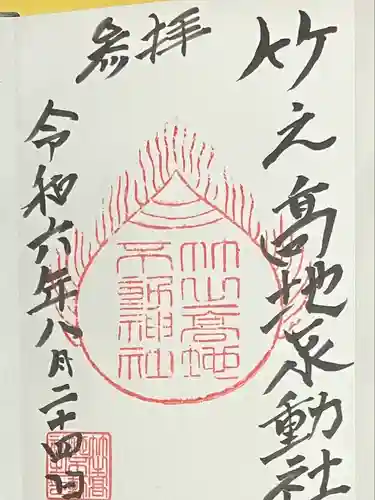 竹之高地不動社
参拝
竹之高地
不動神社
令和六年八月二十四日